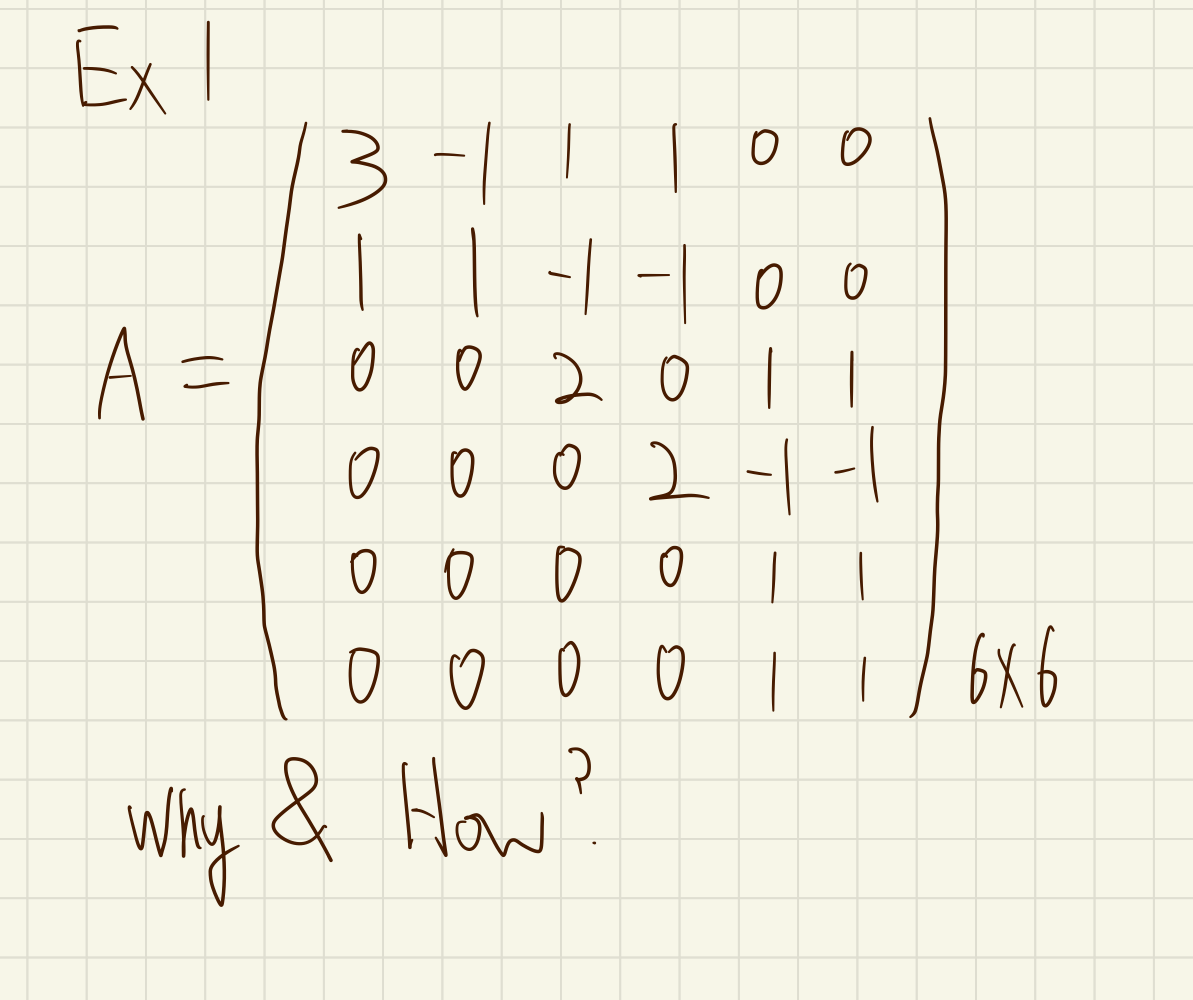 Ex 1
3 -1 1 1 0 0
1 1 -1 -1 0 0
A = 0 0 2 0 1 1
0 0 0 2 -1 -1
0 0 0 0 1 1
0 0 0 0 1 1 6×6
Why & How?